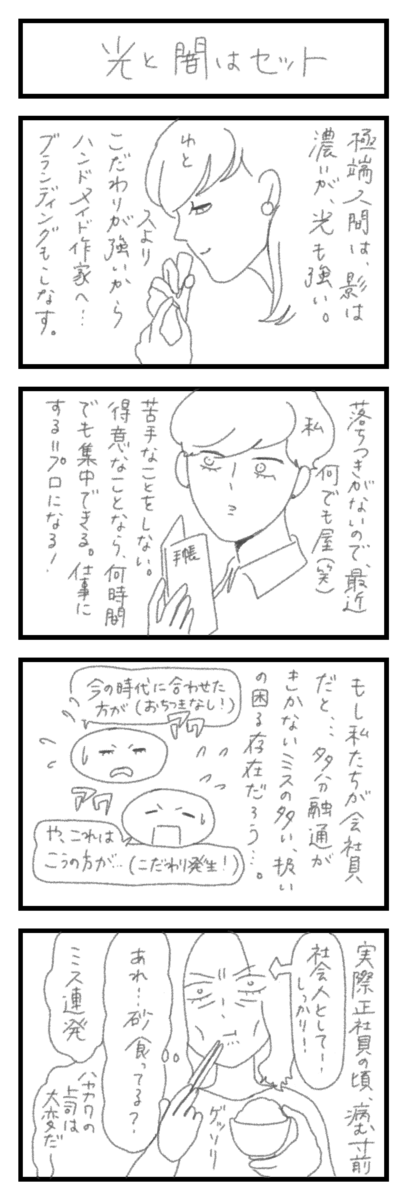 光と闇はセット
極端人間は、影は
濃いが、光も
強い。
ゆと
スより
こだわりが強いから
ハンドメイド作家へ…
ブランディングもこなす。
落ちつきがないので、最近
何でも屋(笑)
私
手帳
苦手なことをしない。
得意なことなら、何時間
でも集中できる。仕事に
する=プロになる!
もし私たちが会社員
だと…多分融通が
きかないミスの多い、扱い
の困る存在だろう…。
今の時代に合わせた
方が(おちつきなし!)
アワ
アワ
や、これは
こうの方が…(こだわり発生!)
実際正社員の頃、病む寸前
社会人としてー
しっかり!
あれ…砂食ってる?
ゲッソリ
ミス連発
ハヤカワの
上司は
大変だ〜